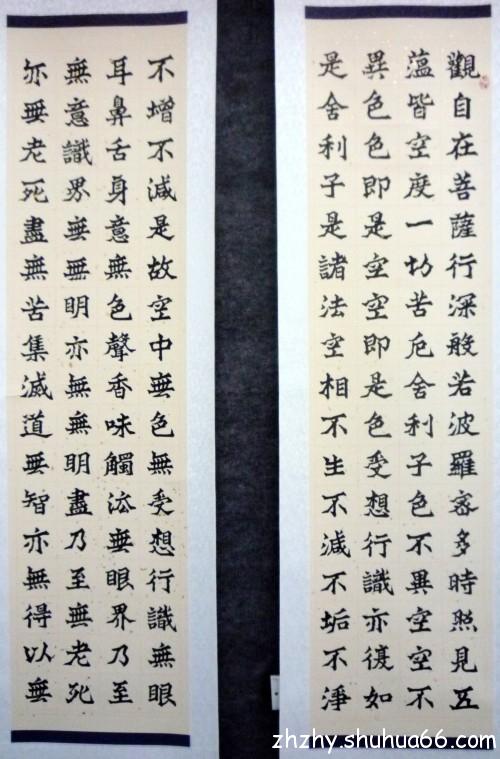 觀自在菩薩行深般若波羅蜜多時照見五
薀皆空度一切苦厄舍利子色不異空空不
異色色即是空空即是色受想行識亦復如
是舍利子是諸法空相不生不滅不垢不淨
不增不減是故空中無色無受想行識無眼
耳鼻舌身意無色聲香味觸法無眼界乃至
無意識界無無明亦無無明盡乃至無老死
亦無老死盡無苦集滅道無智亦無得以無
zhzhy.shuhua66.com